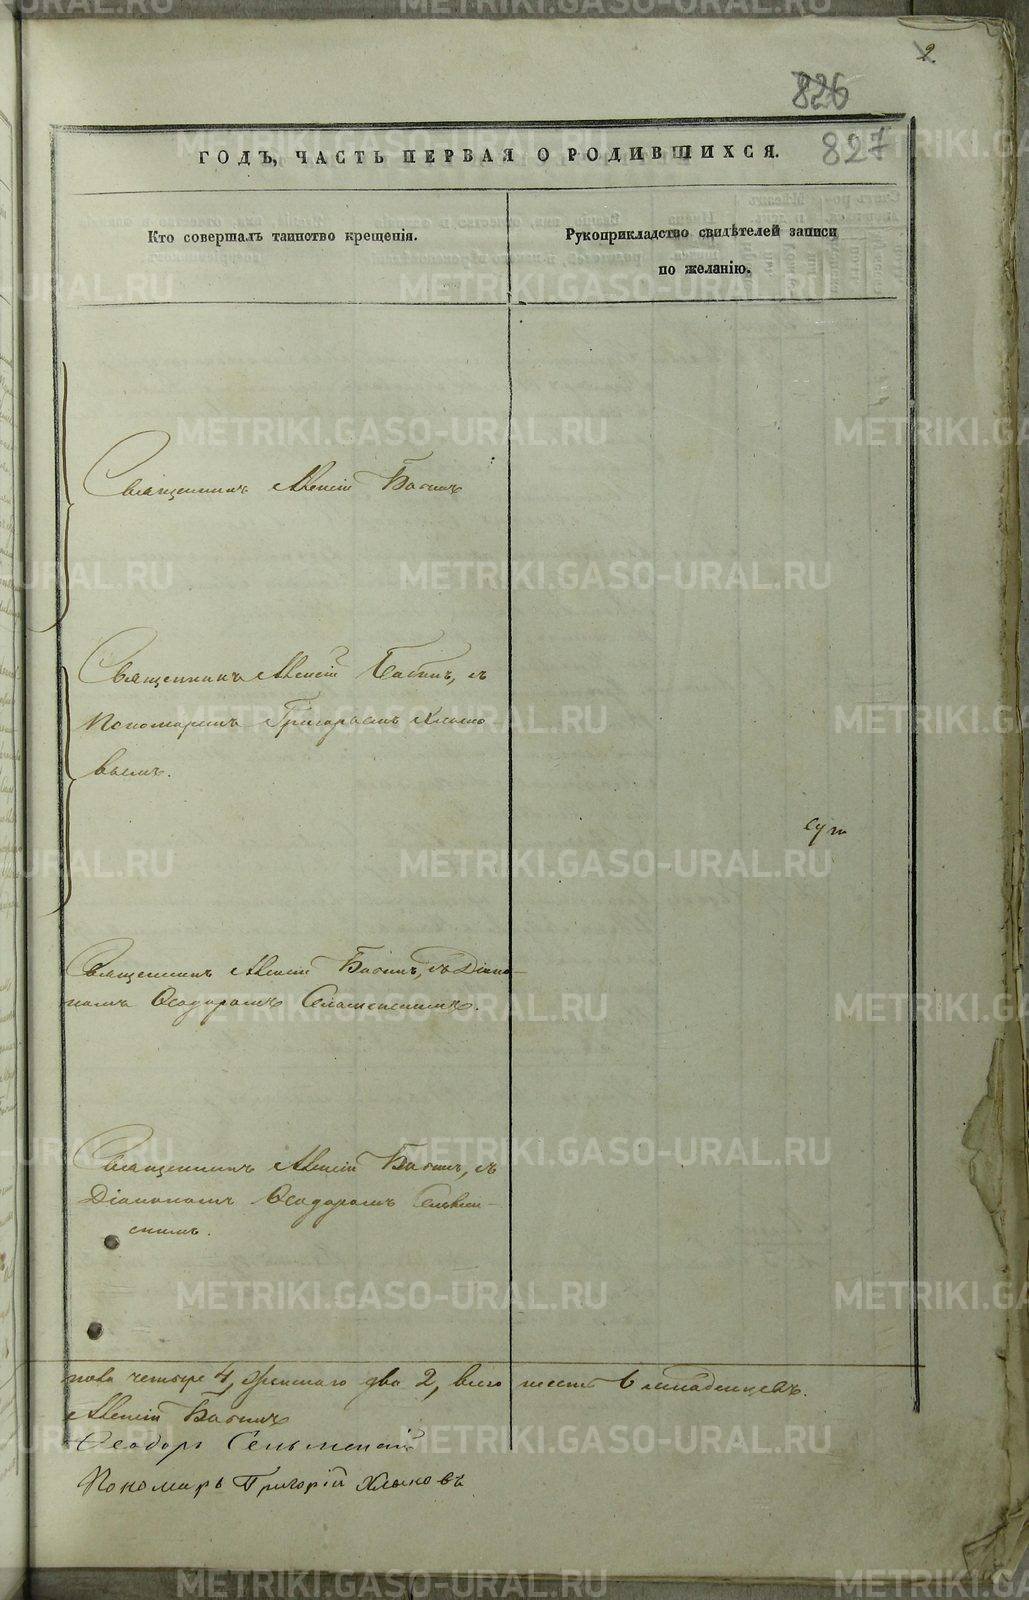 2.
826
827
ГОДЪ, ЧАСТЬ ПЕРВАЯ О РОДИВШИХСЯ.
Кто совершалъ таинство крещенія.
Рукоприкладство свидѣтелей записи
по желанію.
Священникъ Алексій Бабинъ
Священникъ Алексій Бабинъ, съ
Пономаремъ Григорьемъ Клыко-
вымъ.
Священникъ Алексій Бабинъ, съ Діако-
номъ Ѳеодоромъ
Священникъ Алексій Бабинъ, съ
Діакономъ Ѳеодоромъ
скимъ.
пола четыре 4, женскаго два 2, всего шесть 6 младенцевъ.
Алексій Бабинъ
Ѳеодоръ
Пономарь Григорій Клыковъ
METRIKI.GASO-URAL.RU